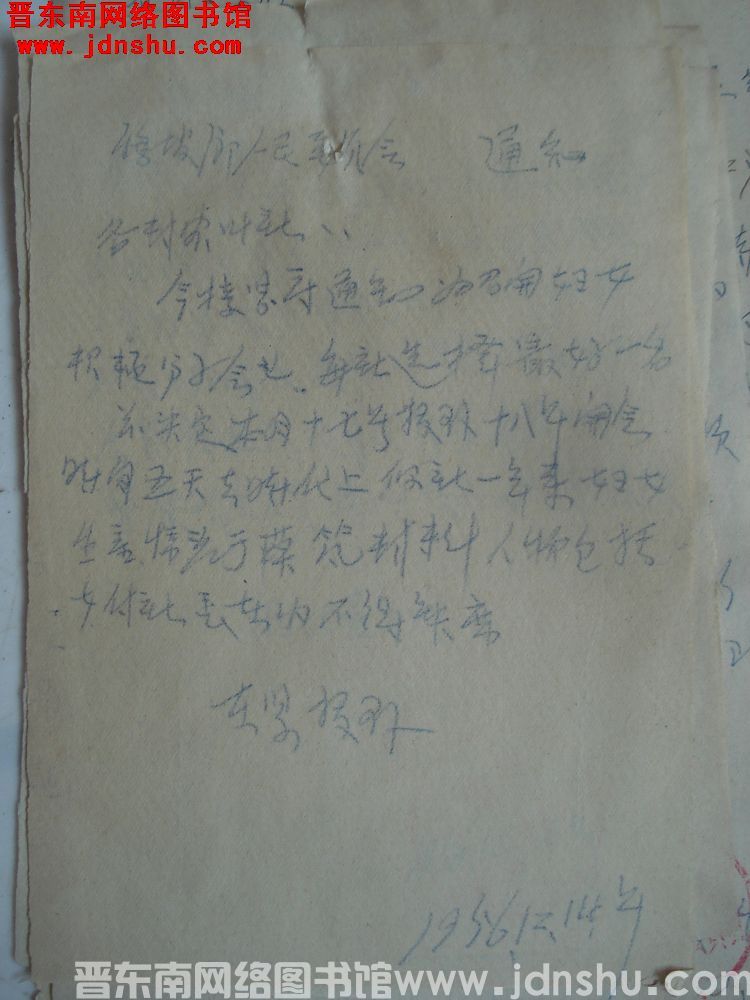 晋东南网络图书馆
www.jdnshu.com
人民委员会 通知
各村农业社:
今接县府通知为召开妇女
积极分子会议,每社选择最好一名
决定本月十七号报到十八号开会
时间五天去时代上你社一年来妇女
生产情况于模范材料人物包括
女付社长在内不得缺席
在县报到
1956.12.14号
晋东南网络图书馆 www.jdnshu.com